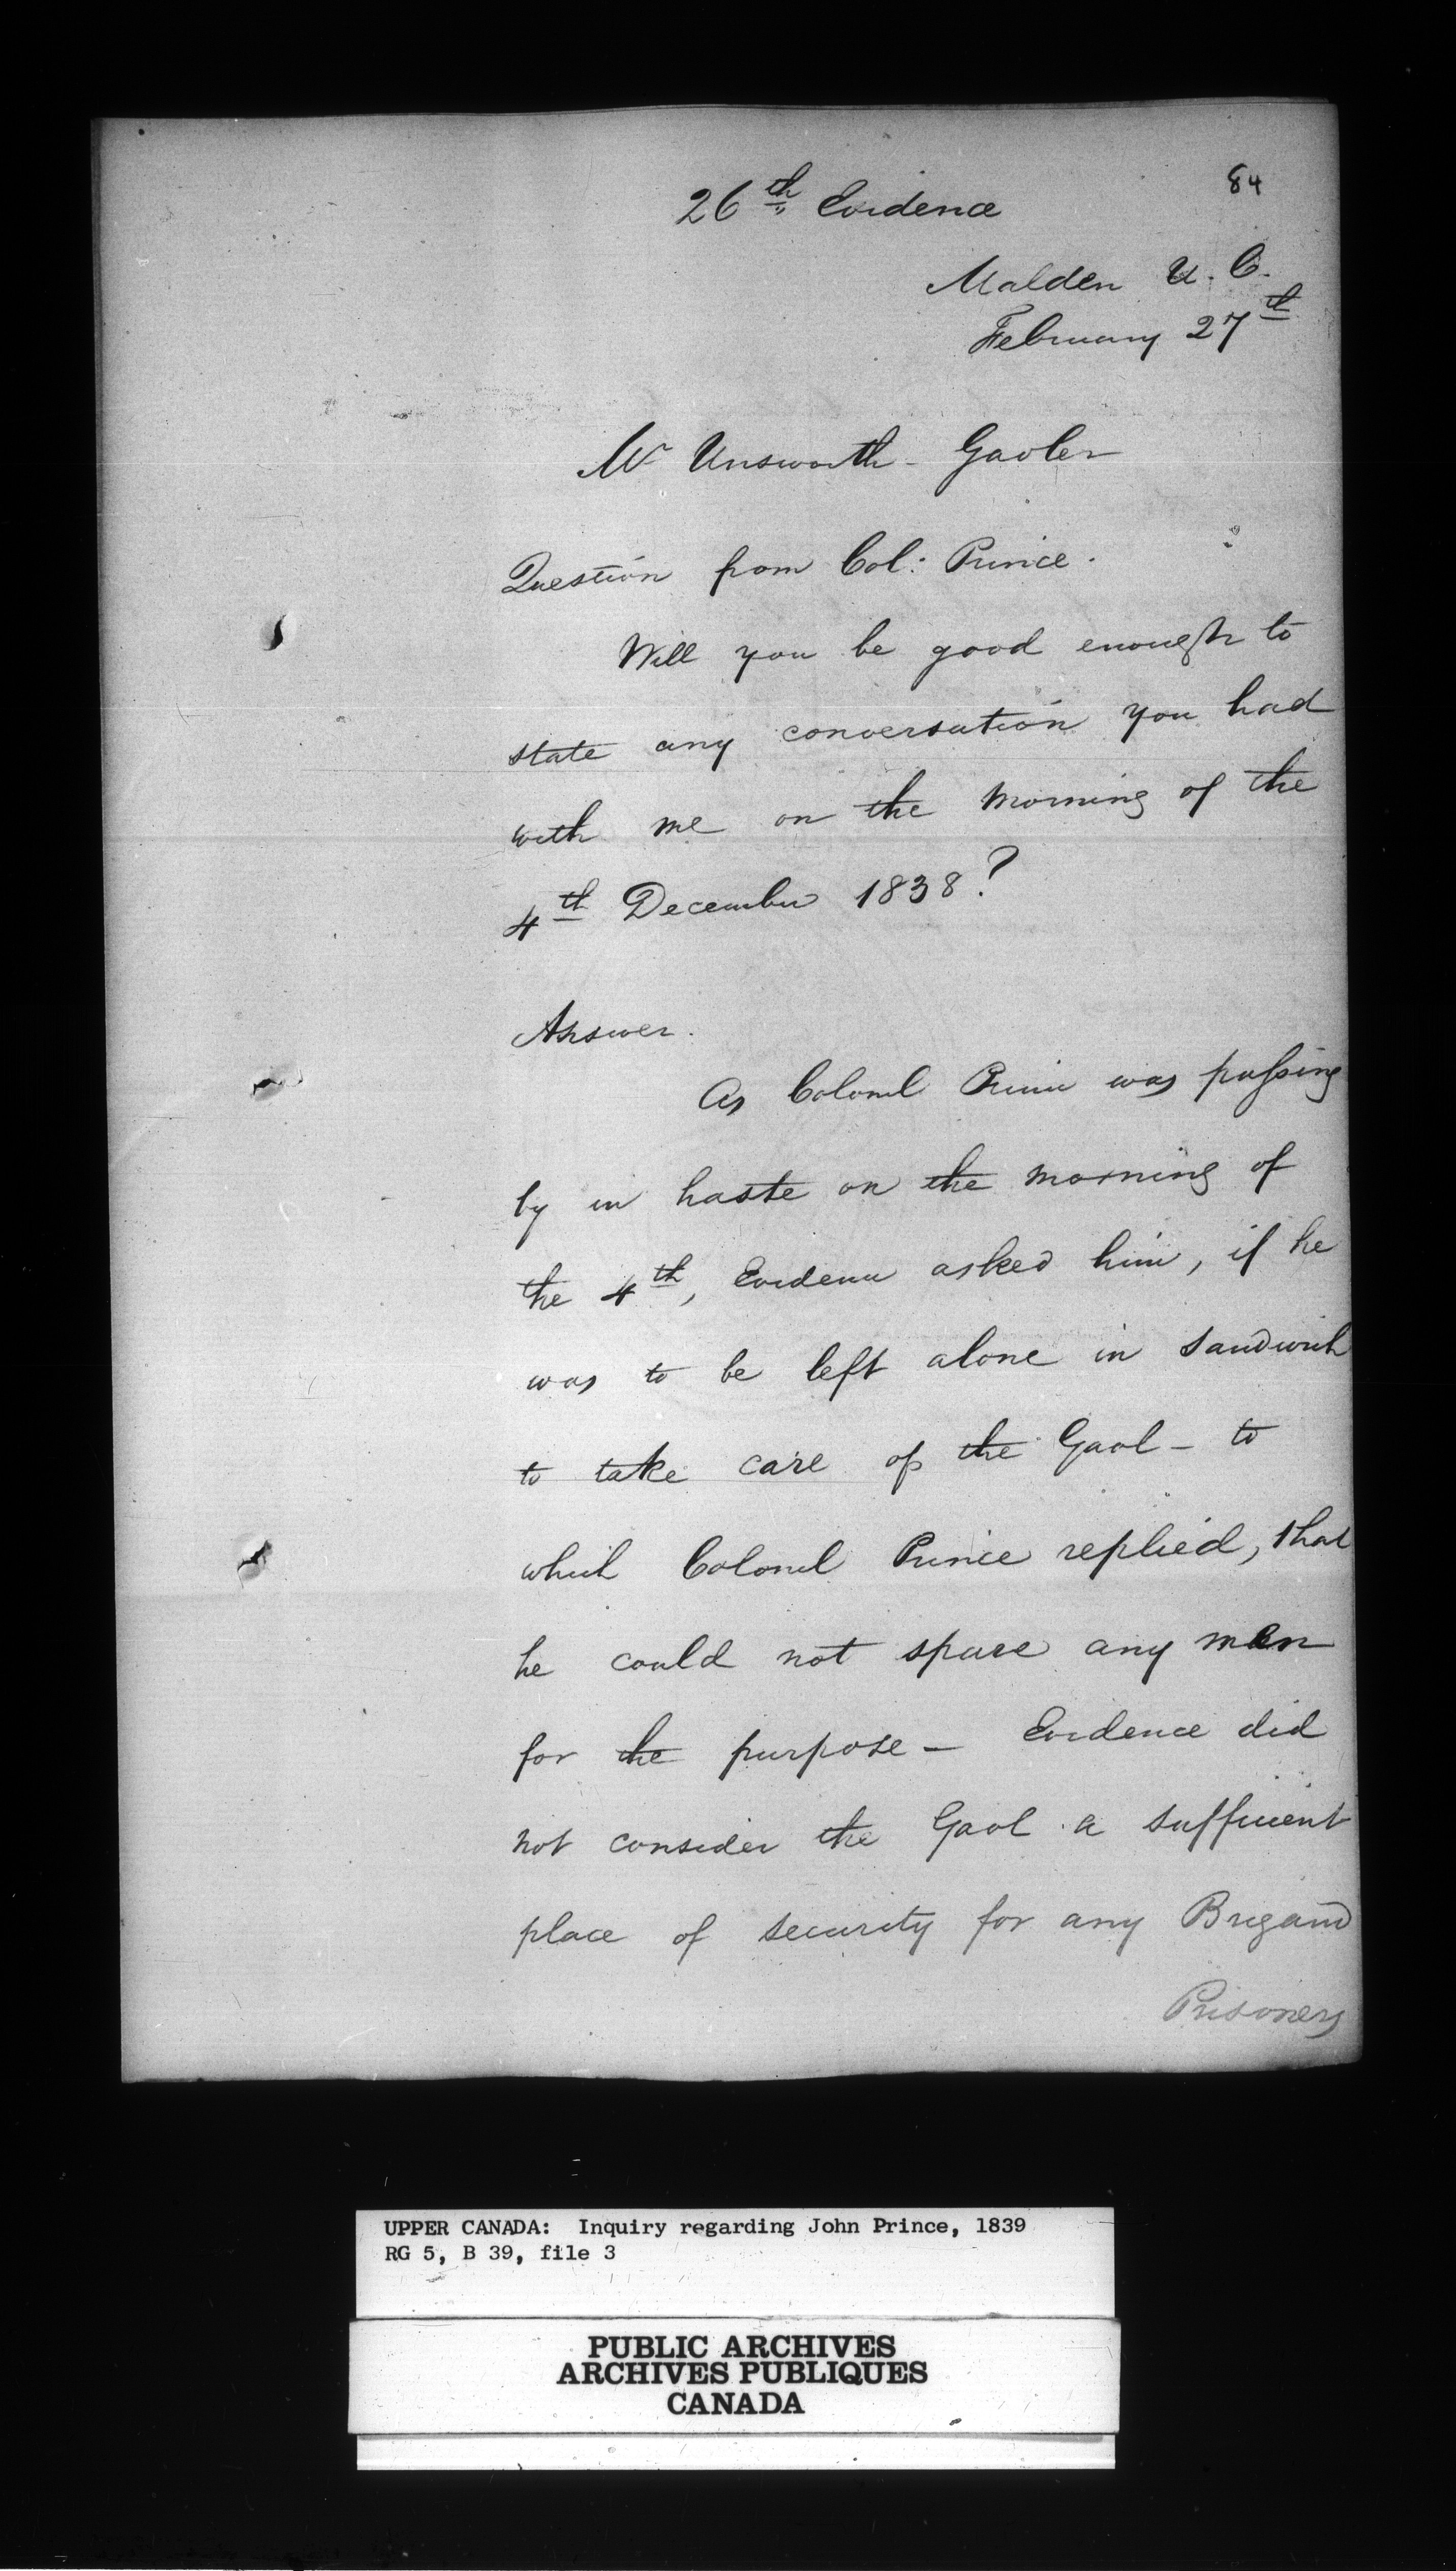 84
26th Evidence
Malden U. C.
February 27th
Mr Unsworth - Gaoler
Question from Col: Prince.
Will you be good enough to
state any conversation you had
with me on the morning of the
4th December 1838?
Answer.
As Colonel Prince was passing
by in haste on the morning of
the 4th, Evidence asked him, if he
was to be left alone in Sandwich
to take care of the Gaol - to
which Colonel Prince replied, that
he could not spare any men
for the purpose - Evidence did
not consider the Gaol a sufficient
place of security for any Brigand
Prisoners
UPPER CANADA: Inquiry regarding John Prince, 1839
RG 5, B 39, file 3
PUBLIC ARCHIVES
ARCHIVES PUBLIQUES
CANADA